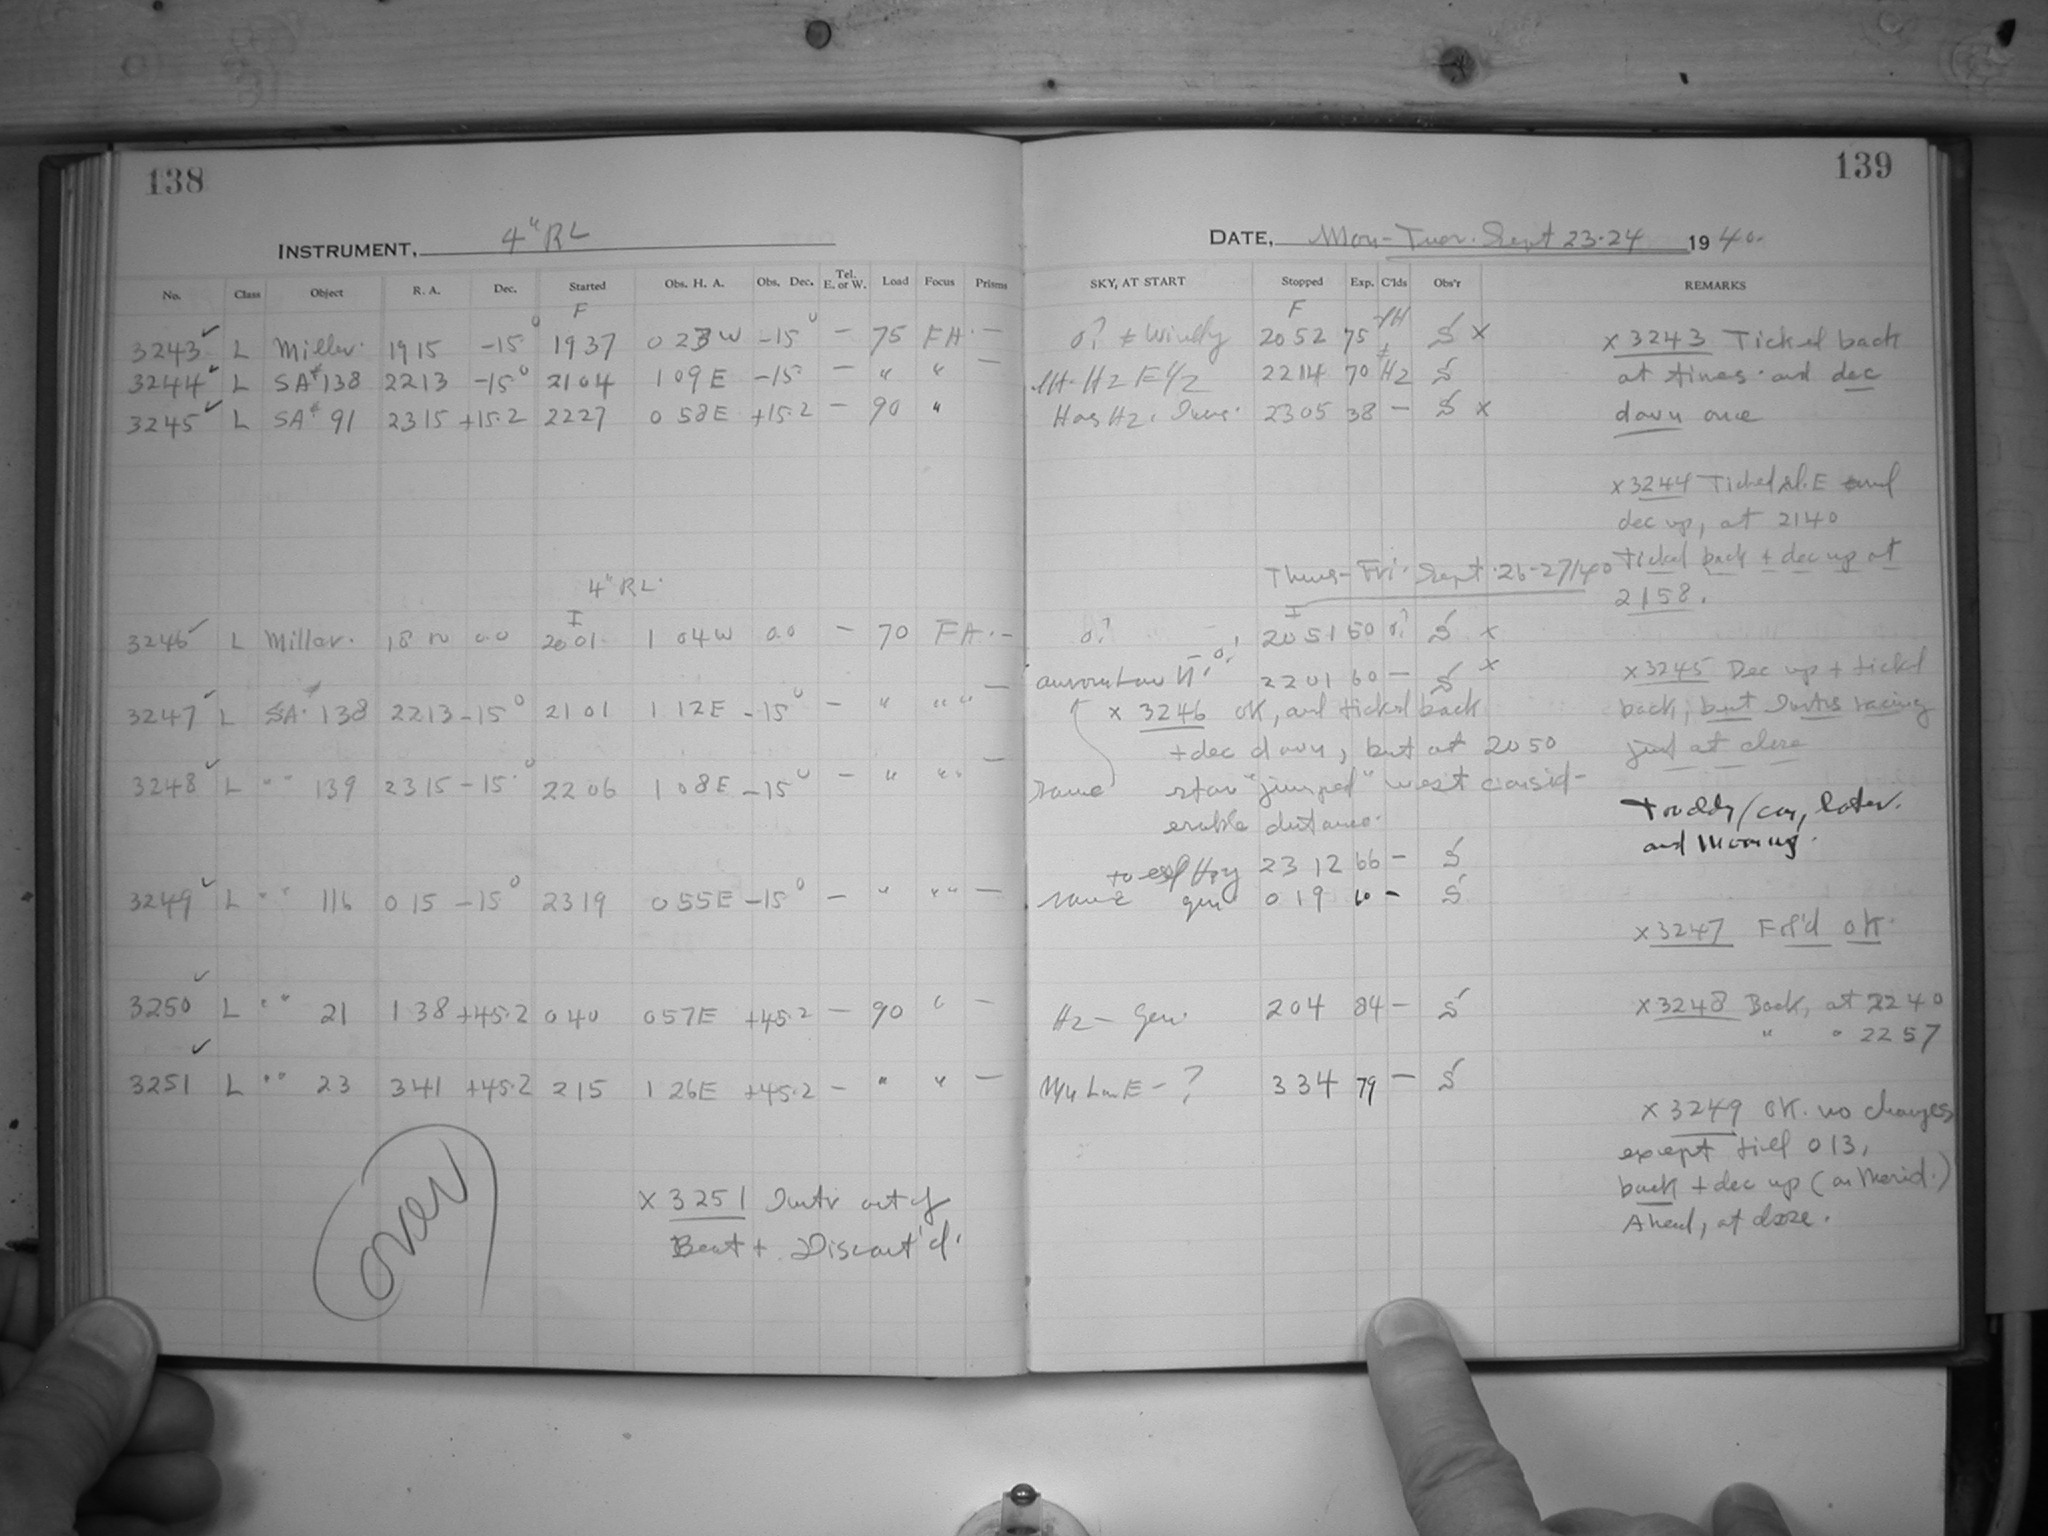 138
INSTRUMENT, 4" RL
No. Class Object R. A. Dec. Started Obs. H. A. Obs. Dec. Tel. E. or W. Load Focus Prisms
F
3243 ✓ L Miller. 1915 -15° 1937 0 23 W -15° - 75 FA. -
3244 ✓ L SA# 138 2213 -15° 2104 1 09 E -15° - " " -
3245 ✓ L SA# 91 2315 +15.2 2227 0 58 E +15.2 - 90 "
4" RL.
I
3246 ✓ L Miller. 18 0.0 2001 1 04 W 0.0 - 70 FA. -
3247 ✓ L SA. 138 2213 -15° 2101 1 12 E -15° - " " " -
3248 ✓ L " " 139 2315 -15° 2206 1 08 E -15° - " " " -
3249 ✓ L " " 116 0 15 -15° 2319 0 55 E -15° - " " " -
3250 ✓ L " " 21 1 38 +45.2 0 40 0 57 E +45.2 - 90 " -
3251 ✓ L " " 23 3 41 +45.2 2 15 1 26 E +45.2 - " " -
over
x 3251 Instr out of
Beat + Discont'd.
139
DATE, Mon-Tues. Sept 23-24 1940.
SKY, AT START Stopped Exp. C'lds Obs'r REMARKS
F
o? + Windy 2052 75 S x
2214 70 Hz S
Has Hz. 2305 38 - S x
Thurs-Fri. Sept. 26-27/40
I
o? 2051 50 o? S x
aurora Low N. o? 2201 60 - S x
x 3246 OK, and ticked back
+ dec down, but at 2050
same star "jumped" west consid-
erable distance.
Hzy 2312 66 - S
same gen 0 19 60 - S
Hz - Gen. 2 04 84 - S
Low E - ? 3 34 79 - S
x 3243 Ticked back
at times. and dec
down once
x 3244 Ticked E and
dec up, at 2140
ticked back + dec up at
2158.
x 3245 Dec up + ticked
back, but Instrs racing
just at close
later.
and Morning.
x 3247 Fol'd OK.
x 3248 Back, at 2240
" " 2257
x 3249 OK. no changes
except till 013,
back + dec up (on Merid.)
Ahead, at close.